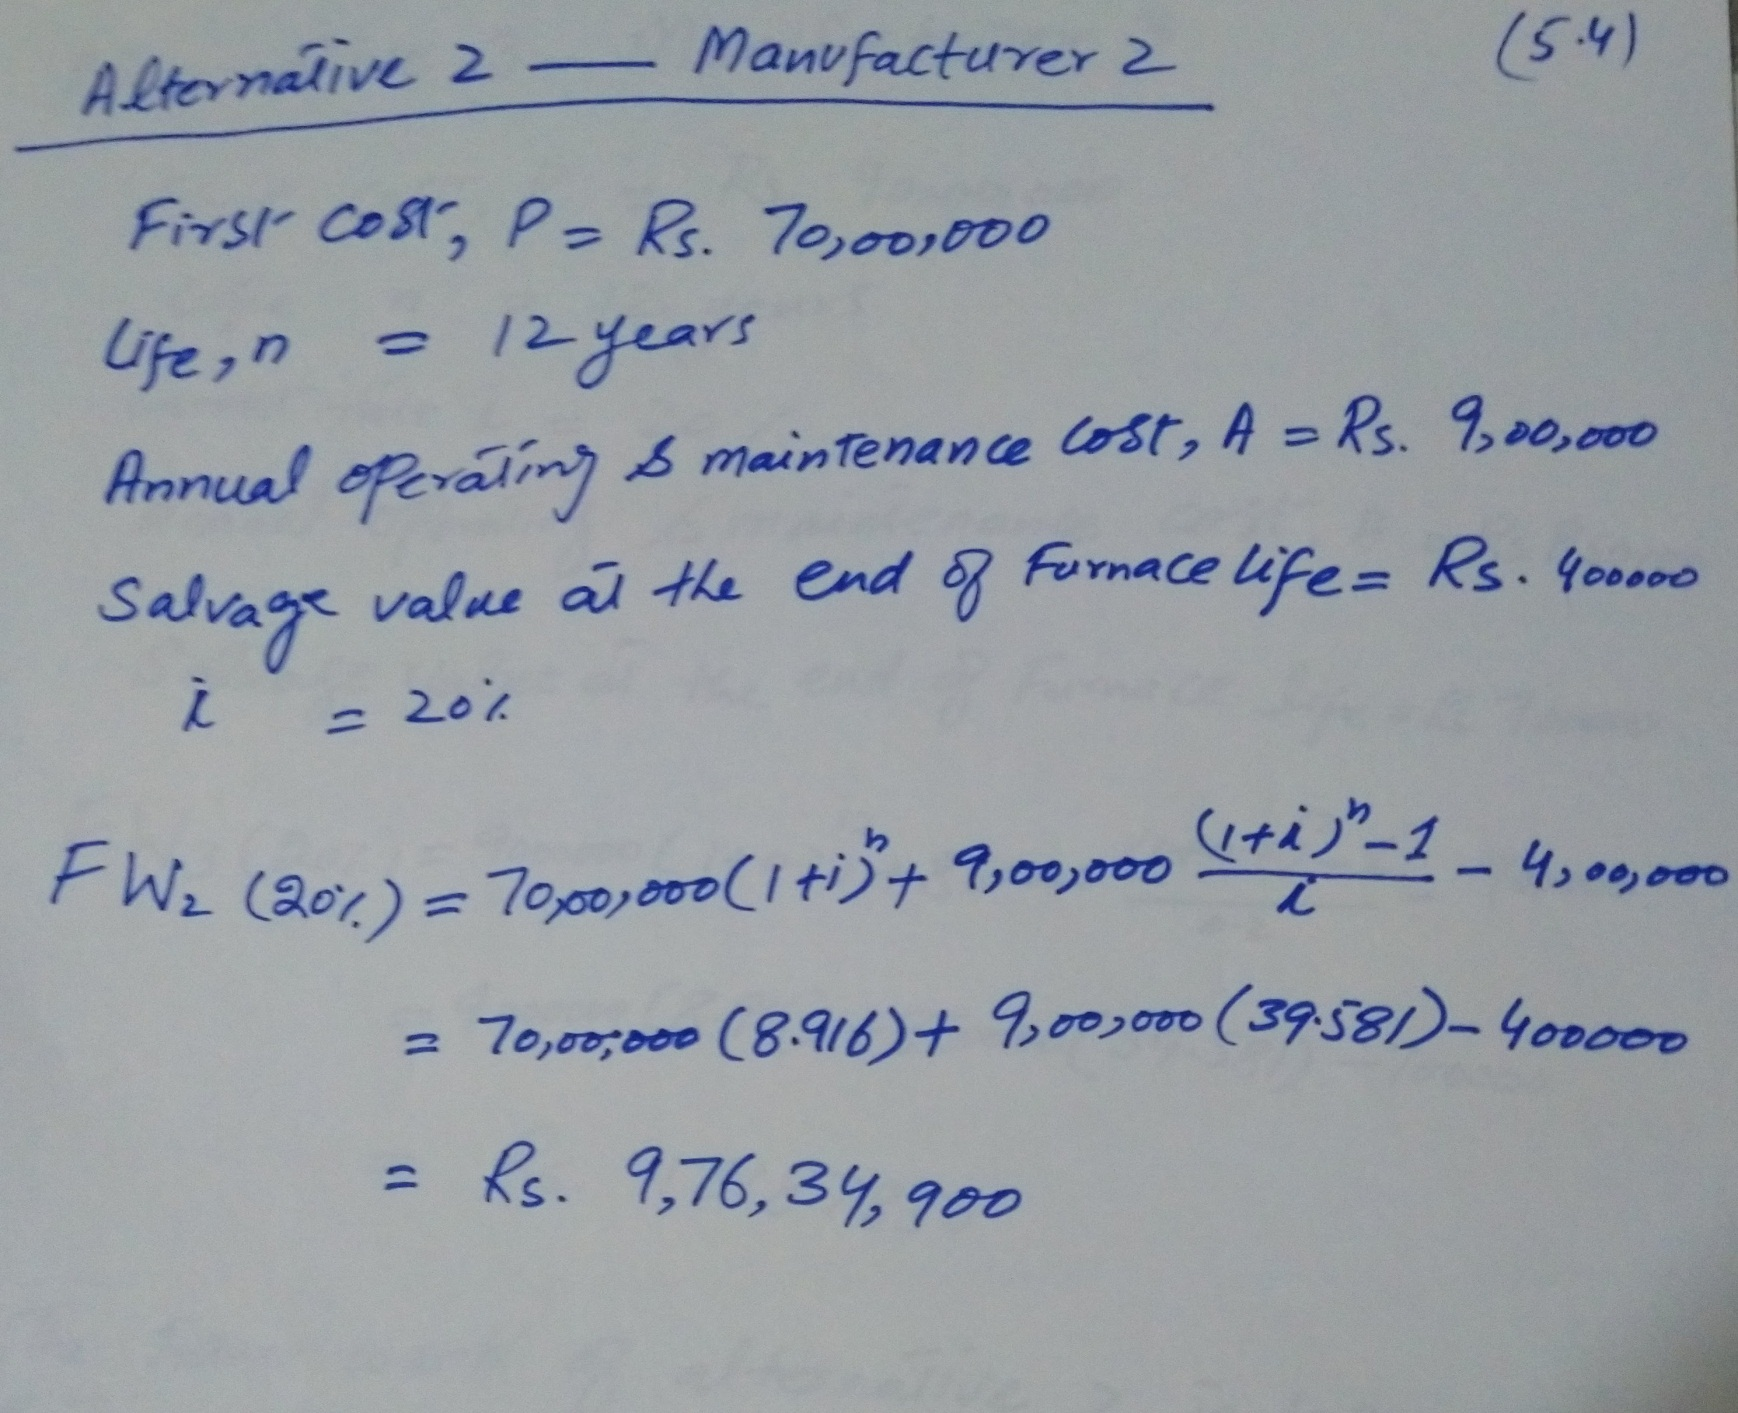 Alternative 2 — Manufacturer 2 (5.4)
First cost, P = Rs. 70,00,000
Life, n = 12 years
Annual operating & maintenance cost, A = Rs. 9,00,000
Salvage value at the end of Furnace life = Rs. 400000
i = 20%
FW₂ (20%) = 70,00,000(1+i)ⁿ + 9,00,000 ((1+i)ⁿ-1)/i - 4,00,000
= 70,00,000 (8.916) + 9,00,000 (39.581) - 400000
= Rs. 9,76,34,900